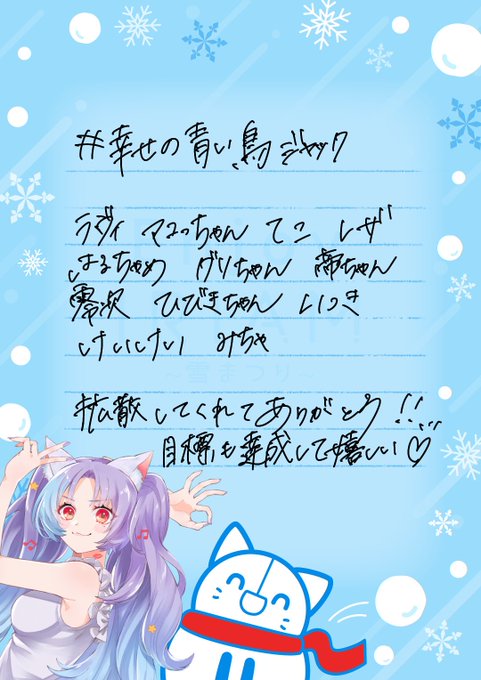 #幸せの青い鳥ジャック
ラディ マコっちゃん てこ レザ
はるちゃめ グリちゃん 帝ちゃん
零次 ひびきちゃん いつき
けいけい みちゃ
~雪まつり~
拡散してくれてありがとう!!...
目標も達成して嬉しい♡